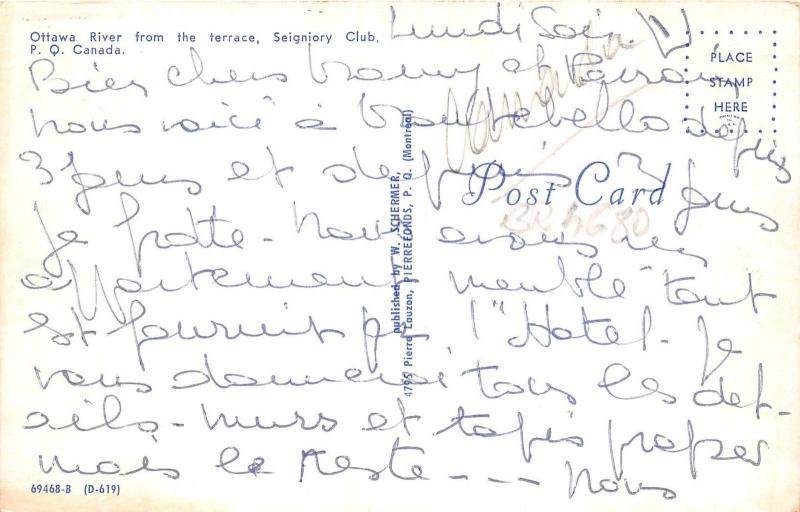 Ottawa River from the terrace, Seigniory Club,
P. Q. Canada.
Lundi Soir
PLACE
STAMP
HERE
Bien chers et
nous voici à depuis
3 jours et depuis 3 jours
Post Card
BR 4680
je frotte - nous avons un
appartement meublé tout
est fournit par l'"Hotel - Je
vous donnerai tous les det-
ails - murs et tapis propres
mais le reste --- nous
published by W. SCHERMER,
4795 Pierre Lauzon, PIERREFONDS, P. Q. (Montreal)
69468-B (D-619)